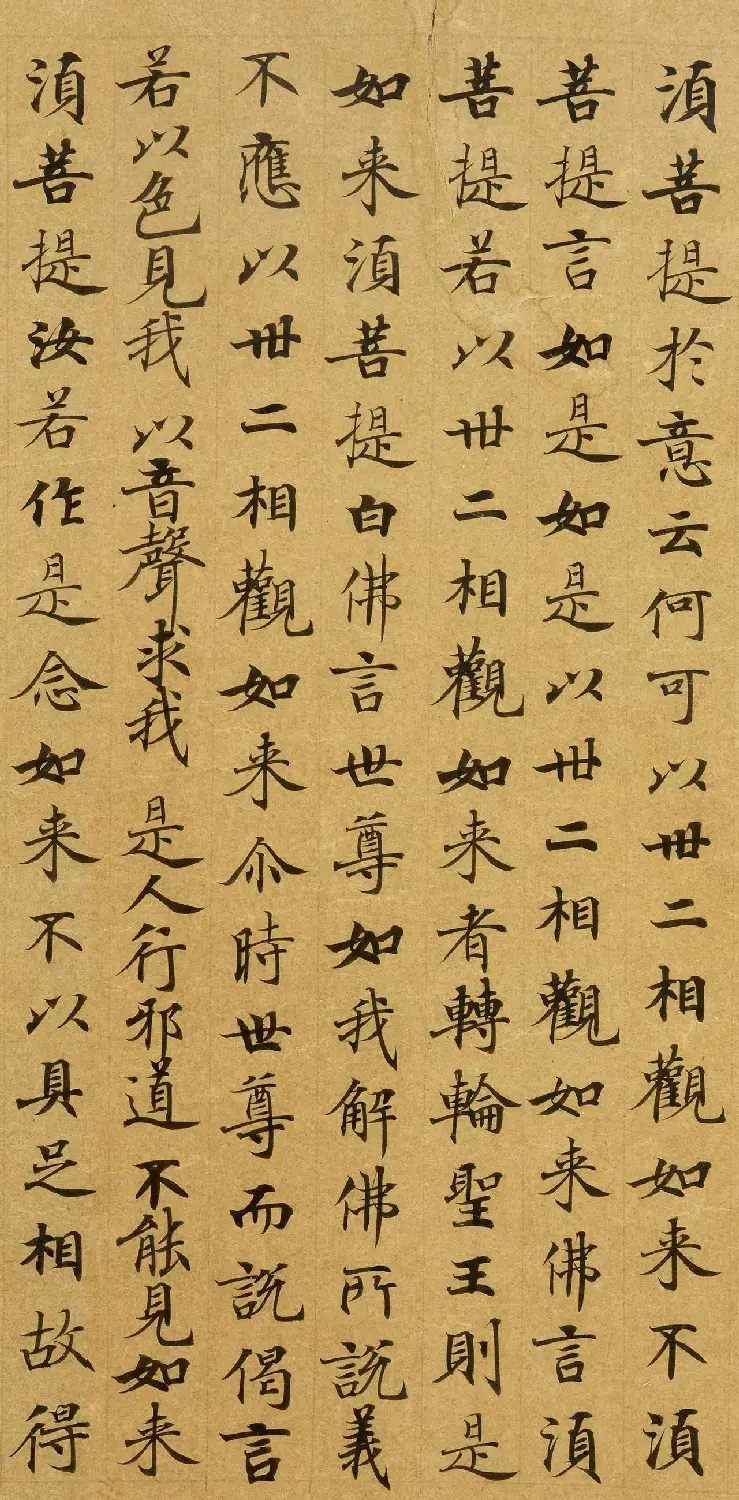 須菩提於意云何可以卅二相觀如来不須
菩提言如是如是以卅二相觀如来佛言須
菩提若以卅二相觀如来者轉輪聖王則是
如来須菩提白佛言世尊如我解佛所說義
不應以卅二相觀如来尒時世尊而說偈言
若以色見我 以音聲求我 是人行邪道 不能見如来
須菩提汝若作是念如来不以具足相故得